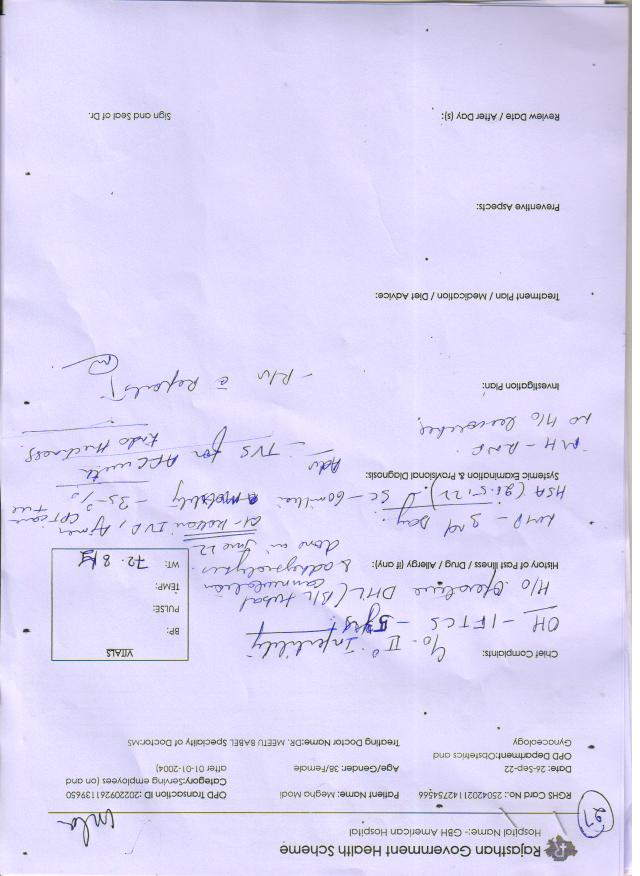 Rajasthan Government Health Scheme
Hospital Name:- GBH American Hospital
297
RGHS Card No.: 25042021142754566
Patient Name: Megha Modi
OPD Transaction ID: 2022092611139650
Date: 26-Sep-22
Age/Gender: 38/Female
Category:Serving employees (on and after 01-01-2004)
OPD Department:Obstetrics and Gynaecology
Treating Doctor Name:DR. MEETU BABEL Speciality of Doctor:MS
Chief Complaints:
c/o - II° Infertility
OH - 1 FTCS - 5 yrs
VITALS
BP:
PULSE:
TEMP:
WT: 72.8 kg
H/O Operative DHL (B/L tubal
cannulation
& adhesiolysis
done in June 22
History of Past Illness / Drug / Allergy (if any):
LMP - 3rd Day.
at - IVF, Ajmer
HSA (21.5.22) SC - 60 million motility - 35%
Systemic Examination & Provisional Diagnosis:
MH - RNF
NO H/O
Adv
- TVS for AFC with
Endo thickness.
Investigation Plan:
- R/w c̄ Reports
Treatment Plan / Medication / Diet Advice:
Preventive Aspects:
Review Date / After Day (s):
Sign and Seal of Dr.